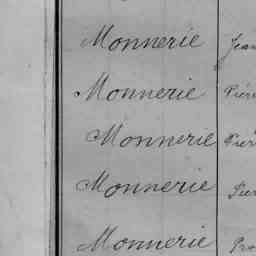 Monnerie Jean
Monnerie Pierr
Monnerie Pier
Monnerie Pier
Monnerie